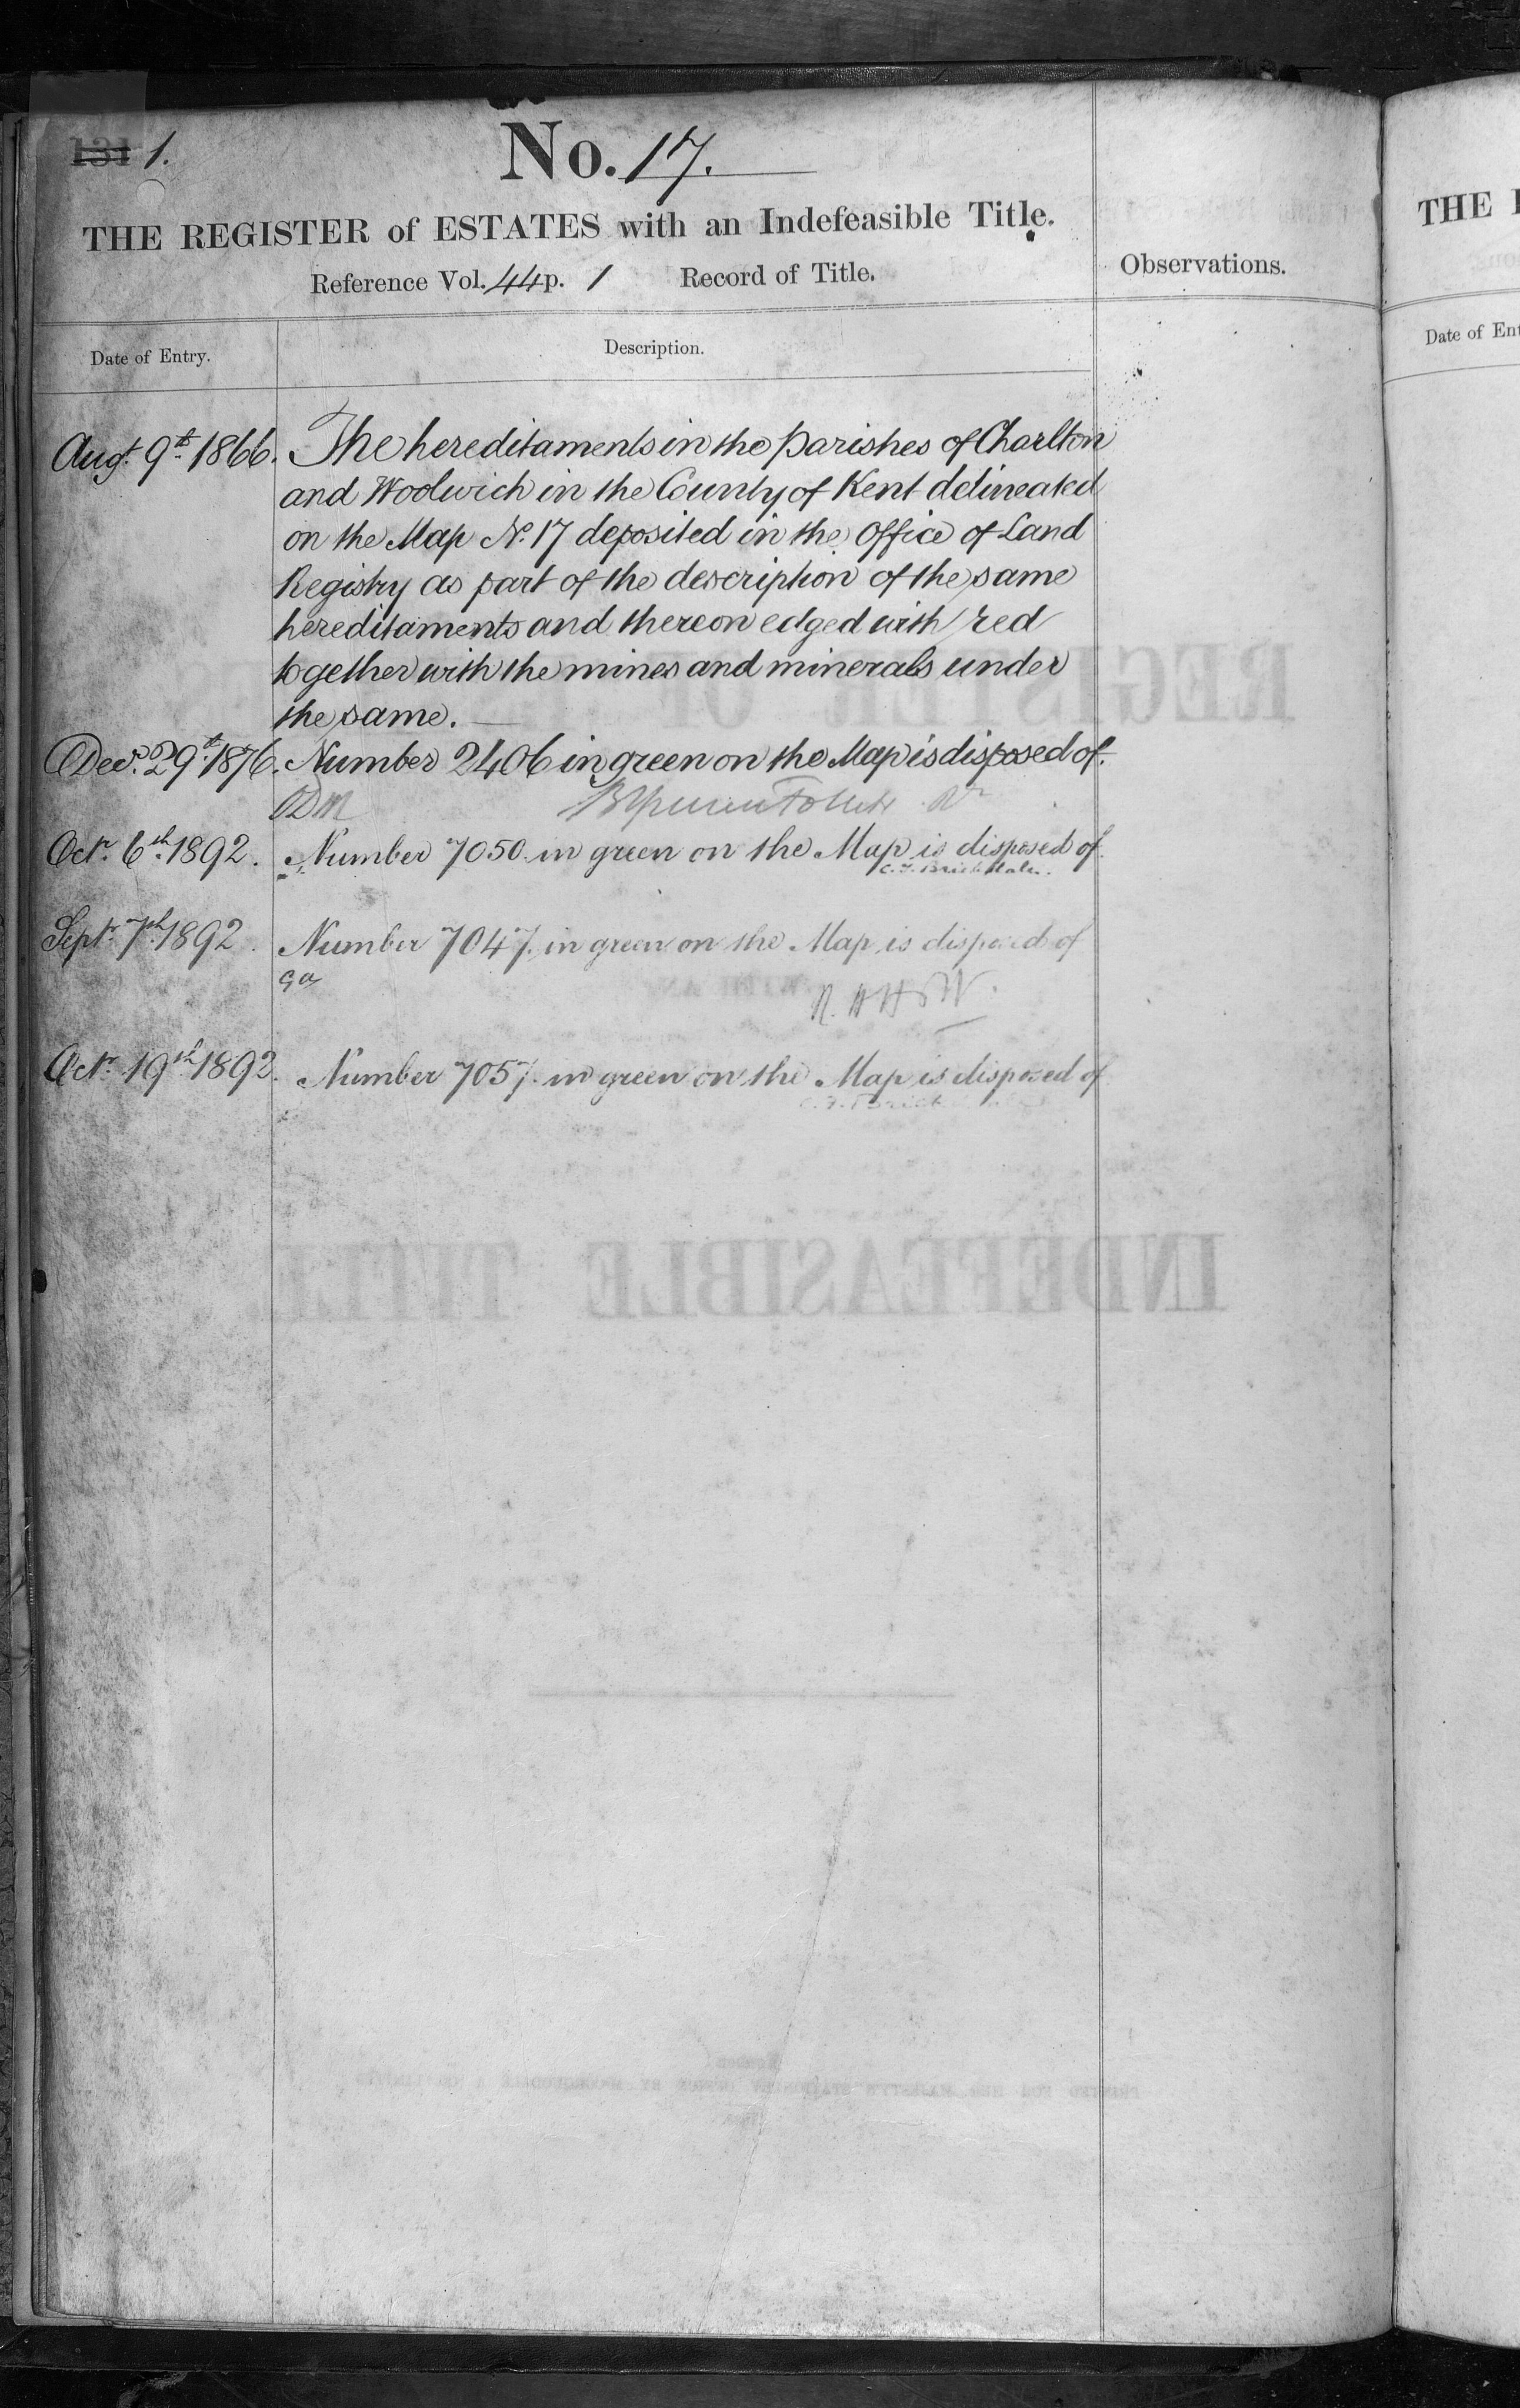 131 1.
No. 17.
THE REGISTER of ESTATES with an Indefeasible Title.
Reference Vol. 44 p. 1 Record of Title.
Observations.
Date of Entry.
Description.
Augt. 9th 1866. The hereditaments in the Parishes of Charlton
and Woolwich in the County of Kent delineated
on the Map No. 17 deposited in the Office of Land
Registry as part of the description of the same
hereditaments and thereon edged with red
together with the mines and minerals under
the same.
Decr. 29th. 1876. Number 2406 in green on the Map is disposed of.
Octr. 6th. 1892. Number 7050 in green on the Map is disposed of.
Septr. 7th. 1892. Number 7047. in green on the Map is disposed of
Octr. 19th 1892. Number 7057. in green on the Map is disposed of
REGISTER OF
INDEFEASIBLE TITLE
THE
Date of Ent